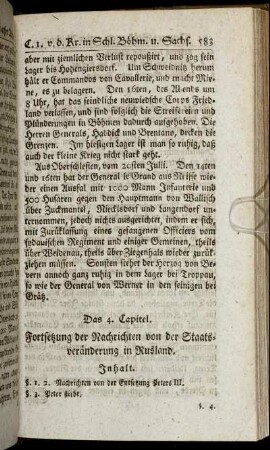 C. 1. v. d. Kr. in Schl. Böhm. u. Sachs. 583
aber mit ziemlichen Verlust repoußirt, und zog sein
Lager bis Hohengiersdorf. Um Schweidnitz herum
hält er Commandos von Cavallerie, und macht Mie-
ne, es zu belagern. Den 16ten, des Abends um
8 Uhr, hat das feindliche neuwiedsche Corps Fried-
land verlassen, und sind folglich die Streifereien und
Plünderungen in Böhmen dadurch aufgehoben. Die
Herren Generals, Haddick und Brentano, decken die
Grenzen. Im hiesigen Lager ist man so ruhig, daß
auch der kleine Krieg nicht stark geht.
Aus Oberschlesien, vom 20sten Julii. Den 14ten
und 16ten hat der General le Grand aus Neisse wie-
der einen Ausfal mit 1000 Mann Infanterie und
500 Husaren gegen den Hauptmann von Wallisch
über Zuckmantel, Niecklesdorf und Langendorf un-
ternommen, jedoch nichts ausgerichtet, indem er sich,
mit Zurücklassung eines gefangenen Officiers vom
sydauischen Regiment und einiger Gemeinen, theils
über Weidenau, theils über Ziegenhals wieder zurük-
ziehen müssen. Sonsten stehet der Herzog von Be-
vern annoch ganz ruhig in dem Lager bei Troppau,
so wie der General von Werner in den seinigen bei
Grätz.
Das 4. Capitel.
Fortsetzung der Nachrichten von der Staats-
veränderung in Rusland.
Inhalt.
§. 1. 2. Nachrichten von der Entsetzung Peters III.
§. 3. Peter stirbt.
§. 4.